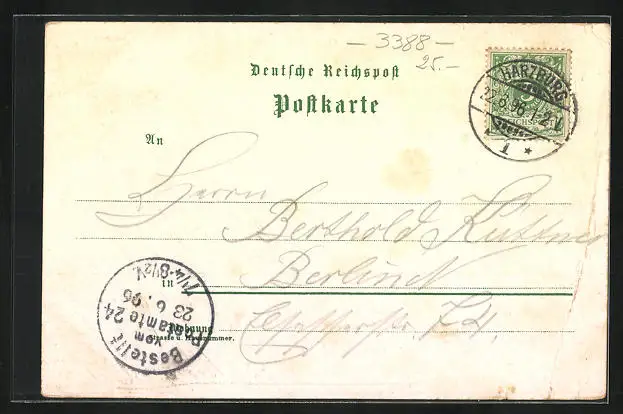 – 3388 –
25.–
Deutsche Reichspost
Postkarte
HARZBURG
22.6.96. 1-2N.
REICHSPOST
1 *
An
Herrn
Berthold Kuttner
in
Berlin
Wohnung
Straße u. Hausnummer.
74.
Bestellt
vom
Postamte 24
23 6. 96
7¼-8½V.